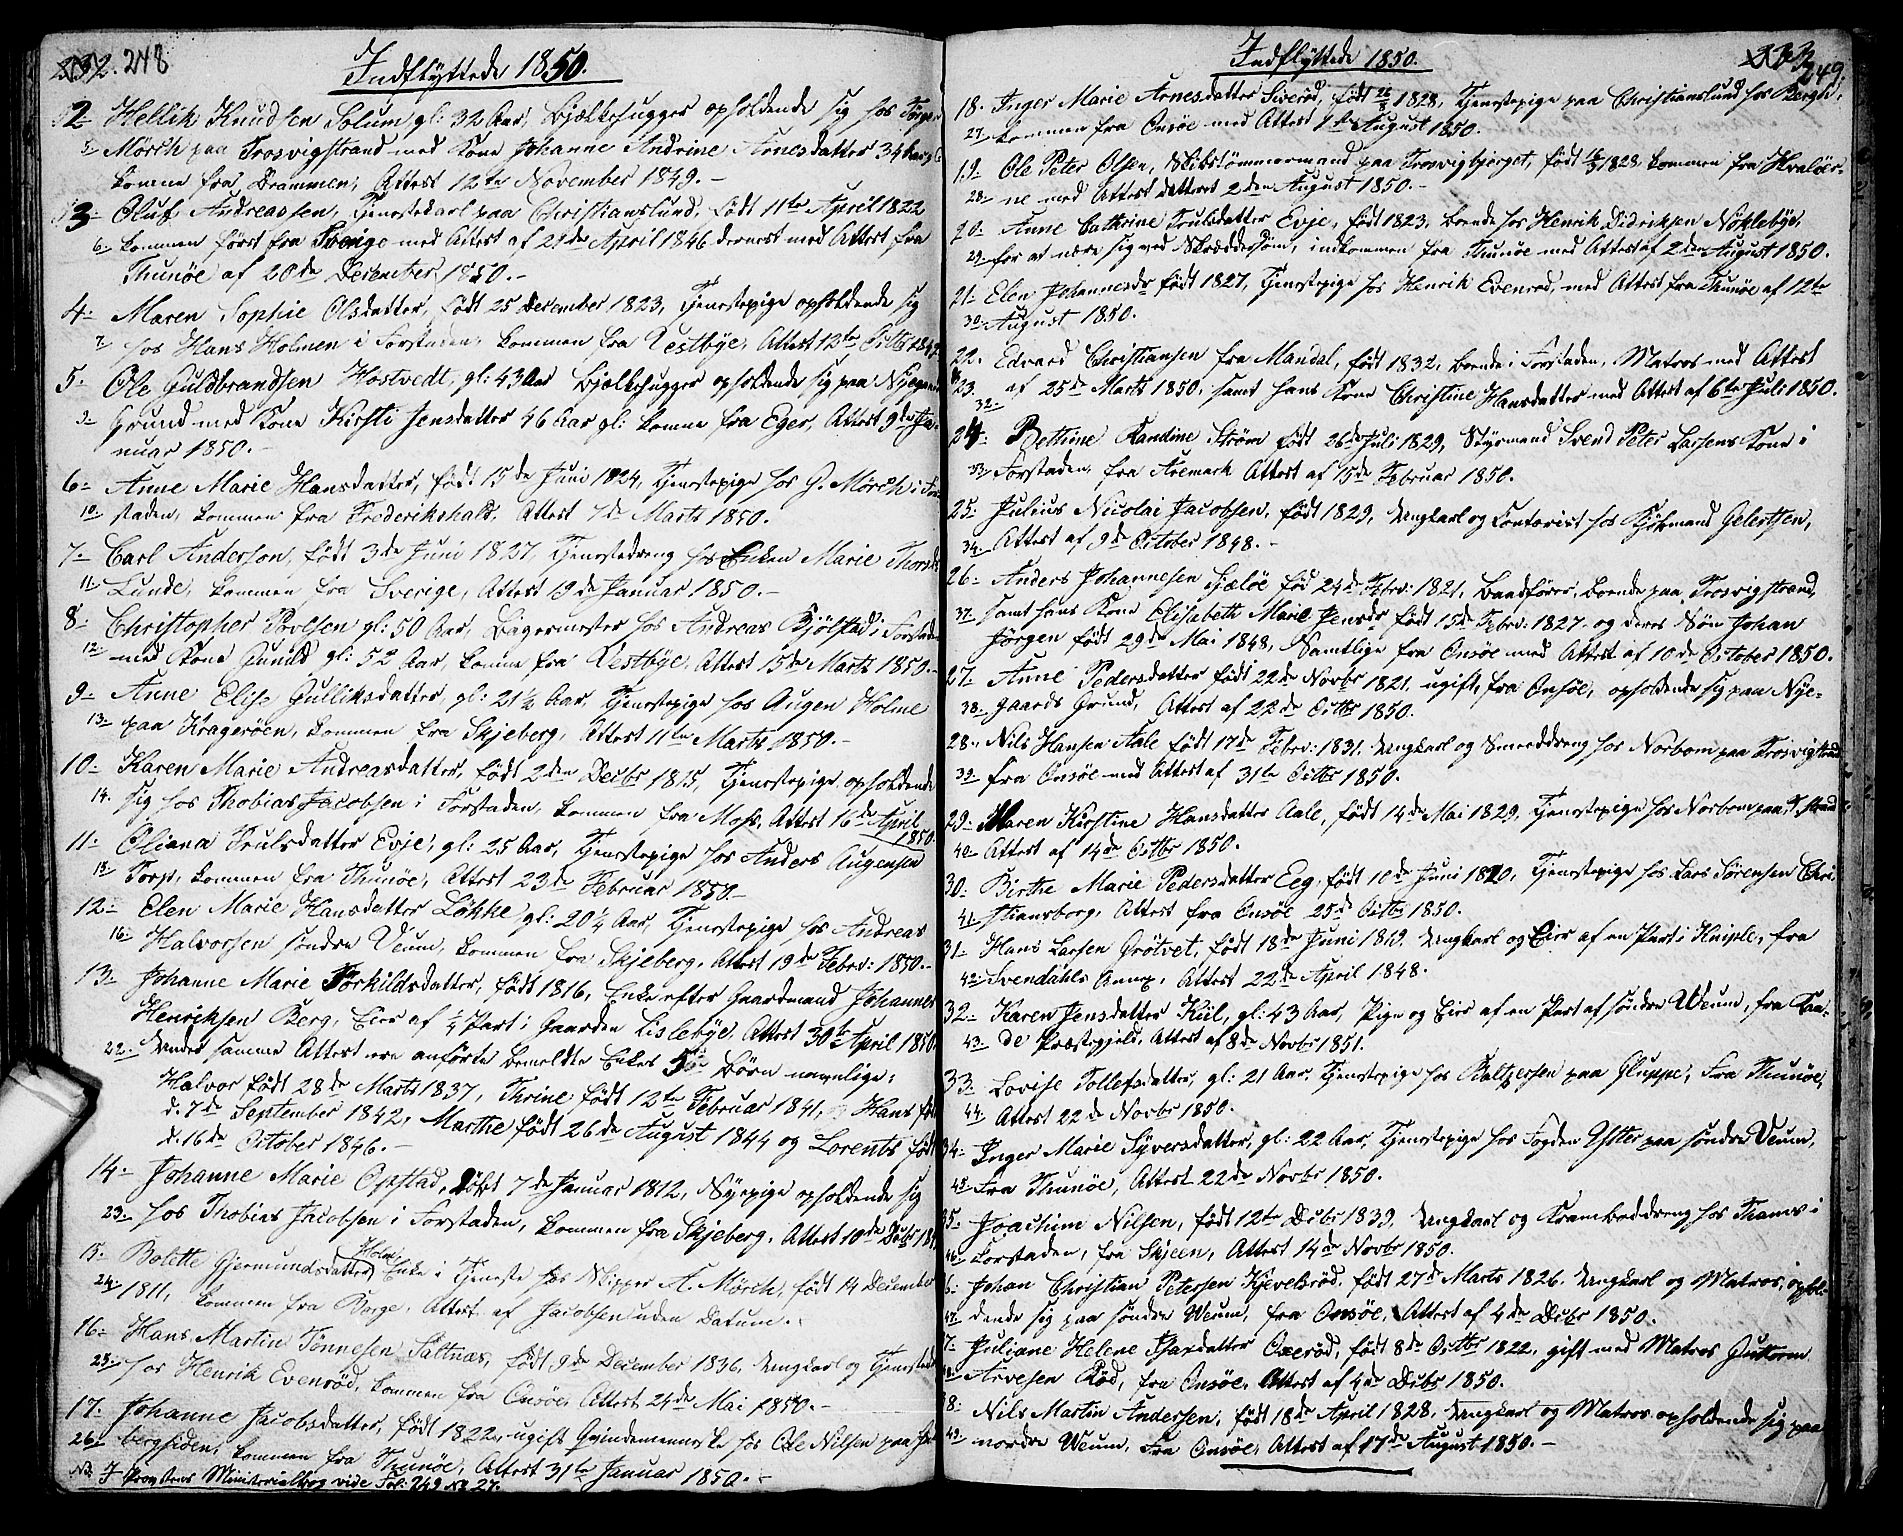 248
Indflyttede 1850.
2 Hellik Knudsen Solum gl: 32 Aar, Bjælkehugger opholdende sig hos
Mörch paa Trosvigstrand med Kone Johanne Andrine Arnesdatter 34 Aar gl:
komne fra Drammen, Attest 12te November 1849.-
3- Oluf Andreassen, Tjenestekarl paa Christianslund, født 11te April 1822
6- kommen først fra Sverige med Attest af 21de April 1846 dernæst med Attest fra
Thunöe af 20de December 1850.-
4- Maren Sophie Olsdatter, født 25 December 1823, Tjenestepige opholdende sig
7- hos Hans Holmen i Forstaden, kommen fra Vestbye, Attest 12te Octbr 1849
5- Ole Guldbrandsen Hostvedt, gl: 43 Aar Bjælkehugger opholdende sig paa Nyegaards
Grund med Kone Kirsti Jensdatter 46 Aar gl: komne fra Eger, Attest 9de Ja-
nuar 1850.-
6- Anne Marie Hansdatter, født 15de Juni 1824, Tjenestepige hos G. Mörch i For-
10- staden, kommen fra Frederikshald, Attest 7de Marts 1850.
7- Carl Anderson, født 3de Juni 1837, Tjenestedreng hos Enken Marie
11- Lunde, kommen fra Sverige, Attest 19de Januar 1850.-
8- Christopher Povelsen gl: 50 Aar, Bagermester hos Andreas Bjölstad i Forstaden
12- med Kone Gunild gl: 52 Aar, komne fra Vestbye, Attest 15de Marts 1850.-
9- Anne Elise Gulliksdatter, gl: 21½ Aar, Tjenestepige hos Augen Holme
13- paa Kragerøen, kommen fra Skjeberg, Attest 11te Marts 1850.-
10- Karen Marie Andreasdatter, født 2den Decbr 1815, Tjenestepige opholdende
14. sig hos Thobias Jacobsen i Forstaden, kommen fra Moss, Attest 16de April
1850.
11- Oliana Trulsdatter Evje, gl: 25 Aar, Tjenestepige hos Anders Augensen
15- Torp, kommen fra Thunöe, Attest 23de Februar 1850.-
12- Elen Marie Hansdatter Løkke gl: 20¼ Aar, Tjenestepige hos Andreas
16- Halvorsen søndre Veum, kommen fra Skjeberg, Attest 19de Febr: 1850.-
13- Johanne Marie Torkildsdatter, født 1816, Enke efter Gaardmand Johannes
Henriksen Berg, Eier af ¼ Part i Gaarden Lislebye, Attest 30te April 1850
22- Under samme Attest ere anførte bemeldte Enkes 5 Børn navnlige:
Halvor født 28de Marts 1837, Thrine født 12te Februar 1841, Hans født
d. 7de September 1842, Marthe født 26de August 1844 og Lorents født
d. 16de October 1846.-
14- Johanne Marie Opstad, født 7de Januar 1812, Sypige opholdende sig
23- hos Thobias Jacobsen i Forstaden, kommen fra Skjeberg, Attest 10de Decbr
15- Bolette Gjermundsdatter Holm, Enke i Tjeneste hos Skipper A. Mörch, født 14 December
24- 1811, kommen fra Borge, Attest af Jacobsen uden Datum.-
16- Hans Martin Tönnesen Saltnæs, født 9de December 1836, Ungkarl og
25- hos Henrik Evenrød, kommen fra Onsöe, Attest 24de Mai 1850.-
17- Johanne Jacobsdatter, født 1822, ugift Qvindemenneske hos Ole Nilsen paa
26- bergsiden, kommen fra Thunöe, Attest 31te Januar 1850.-
NB. I Provstens Ministerialbog vide Fol: 249 No 27.
249.
Indflyttede 1850.
18- Inger Marie Arnesdatter Siverød, født 26/8 1828, Tjenestepige paa Christianslund hos
27- kommen fra Onsöe med Attest August 1850.
19- Ole Peter Olsen, Skibstømmermand paa Trosvigbjerget, født 1828 kommen fra Hvalöer-
28- ne med Attest dateret 2den August 1850.-
20- Anne Cathrine Trulsdatter Evje, født 1823, boende hos Henrik Didriksen Nøklebye,
29- for at nære sig ved Skrædersøm, indkommen fra Thunöe med Attest af 2den August 1850.
21- Elen Johannesdr født 1827, Tjenestepige hos Henrik Evenrød, med Attest fra Thunöe af 12te
30- August 1850.
22- Edvard Christiansen fra Mandal, født 1832, boende i Forstaden, Matros med Attest
23. af 25de Marts 1850, samt hans Kone Christine Hansdatter med Attest af 6te Juli 1850.
32-
24- Bethine Randine Strøm født 26de Juli 1829, Styrmand Svend Peter Larsens Kone i
33- Forstaden, fra Aremark Attest af 15de Februar 1850.
25- Julius Nicolai Jacobsen, født 1829, Ungkarl og Contorist hos Kjøbmand Gelertsen,
34- Attest af 9de October 1848.-
26- Anders Johannesen Sjæløe, fød 24de Febr: 1821, Baadfører, boende paa Trosvigstrand,
37- samt hans Kone Elisabeth Marie Jensdr født 15de Febr: 1827, og deres Søn Johan
Jörgen født 29de Mai 1848, Samtlige fra Onsöe med Attest af 10de October 1850.
27- Anne Pedersdatter født 22de Novbr 1821, ugift, fra Onsöe, opholdende sig paa Nye-
38- gaards Grund, Attest af 22de Octbr 1850.
28- Nils Hansen Aale født 17de Febr: 1831, Ungkarl og Smeddreng hos Norbom paa Trosvigstrand
39- fra Onsöe med Attest af 31te Octbr 1850.
29- Maren Kirstine Hansdatter Aale, født 14de Mai 1829, Tjenestepige hos Norbom paa T. strand
40- Attest af 14de Octbr 1850.
30- Birthe Marie Pedersdatter Eeg, født 10de Juni 1820, Tjenestepige hos Lars Sörensen Chri-
41- stiansborg, Attest fra Onsöe 25de Octbr 1850.
31- Hans Larsen Grøtvet, født 18de Juni 1819, Ungkarl og Eier af en Part i Kniple, fra
42- Svendahls Annex, Attest 22de April 1848.
32- Karen Jensdatter Kiil, gl: 43 Aar, Pige og Eier af en Part af søndre Veum, fra Raa-
43- de Præstegjeld, Attest af 8de Novbr 1851.
33- Lovise Tollefsdatter, gl: 21 Aar, Tjenestepige hos Baltzersen paa Gluppe, fra Thunöe,
44- Attest 22de Novbr 1850.
34- Inger Marie Syversdatter, gl: 22 Aar, Tjenestepige hos Fogden Ytter paa søndre Veum,
45- fra Thunöe, Attest 22de Novbr 1850.
35- Joachim Nilsen, født 12te Decbr 1839, Ungkarl og Kramboddreng hos Thanes i
46- Forstaden, fra Skjeen, Attest 14de Novbr 1850.
6- Johan Christian Petersen Kjevelsrød, født 27de Marts 1826, Ungkarl og Matros, ophol-
dende sig paa søndre Veum, fra Onsöe, Attest af 4de Decbr 1850.
7- Juliane Helene Isaxdatter Oxerød, født 8de Octbr 1822, gift med Matros Guttorm
Arvesen Rød, fra Onsöe, Attest af 4de Decbr 1850.
8- Nils Martin Andersen, født 18de April 1828, Ungkarl og Matros opholdende sig paa
49- nordre Veum, fra Onsöe, Attest af 17de August 1850.-